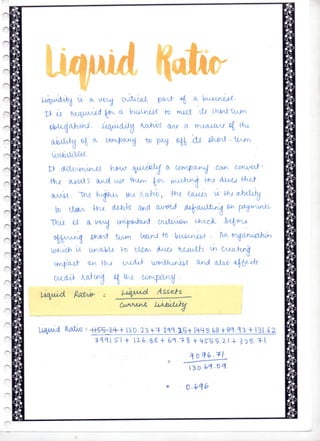 Liquid Ratio
Liquidity is a very critical part of a business.
It is required for a business to meet its short term
obligations. Liquidity ratios are a measure of the
ability of a company to pay off its short-term
liabilities.
It determines how quickly a company can convert
the assets and use them for meeting the dues that
arise. The higher the ratio, the easier is the ability
to clear the debts and avoid defaulting on payments
This is a very important criterion check before
offering short term loans to business. An organisation
which is unable to clear dues results in creating
impact on the credit worthiness and also affects
credit rating of the company.
Liquid Ratio = Liquid Assets
Current Liability
Liquid Ratio = + 120.23+7 299.35+1445.68+89.93+131.62
7991.51 + 126.88 + 69.78 + 4555.21 + 325.71
= 9096.71
13069.09
= 0.696